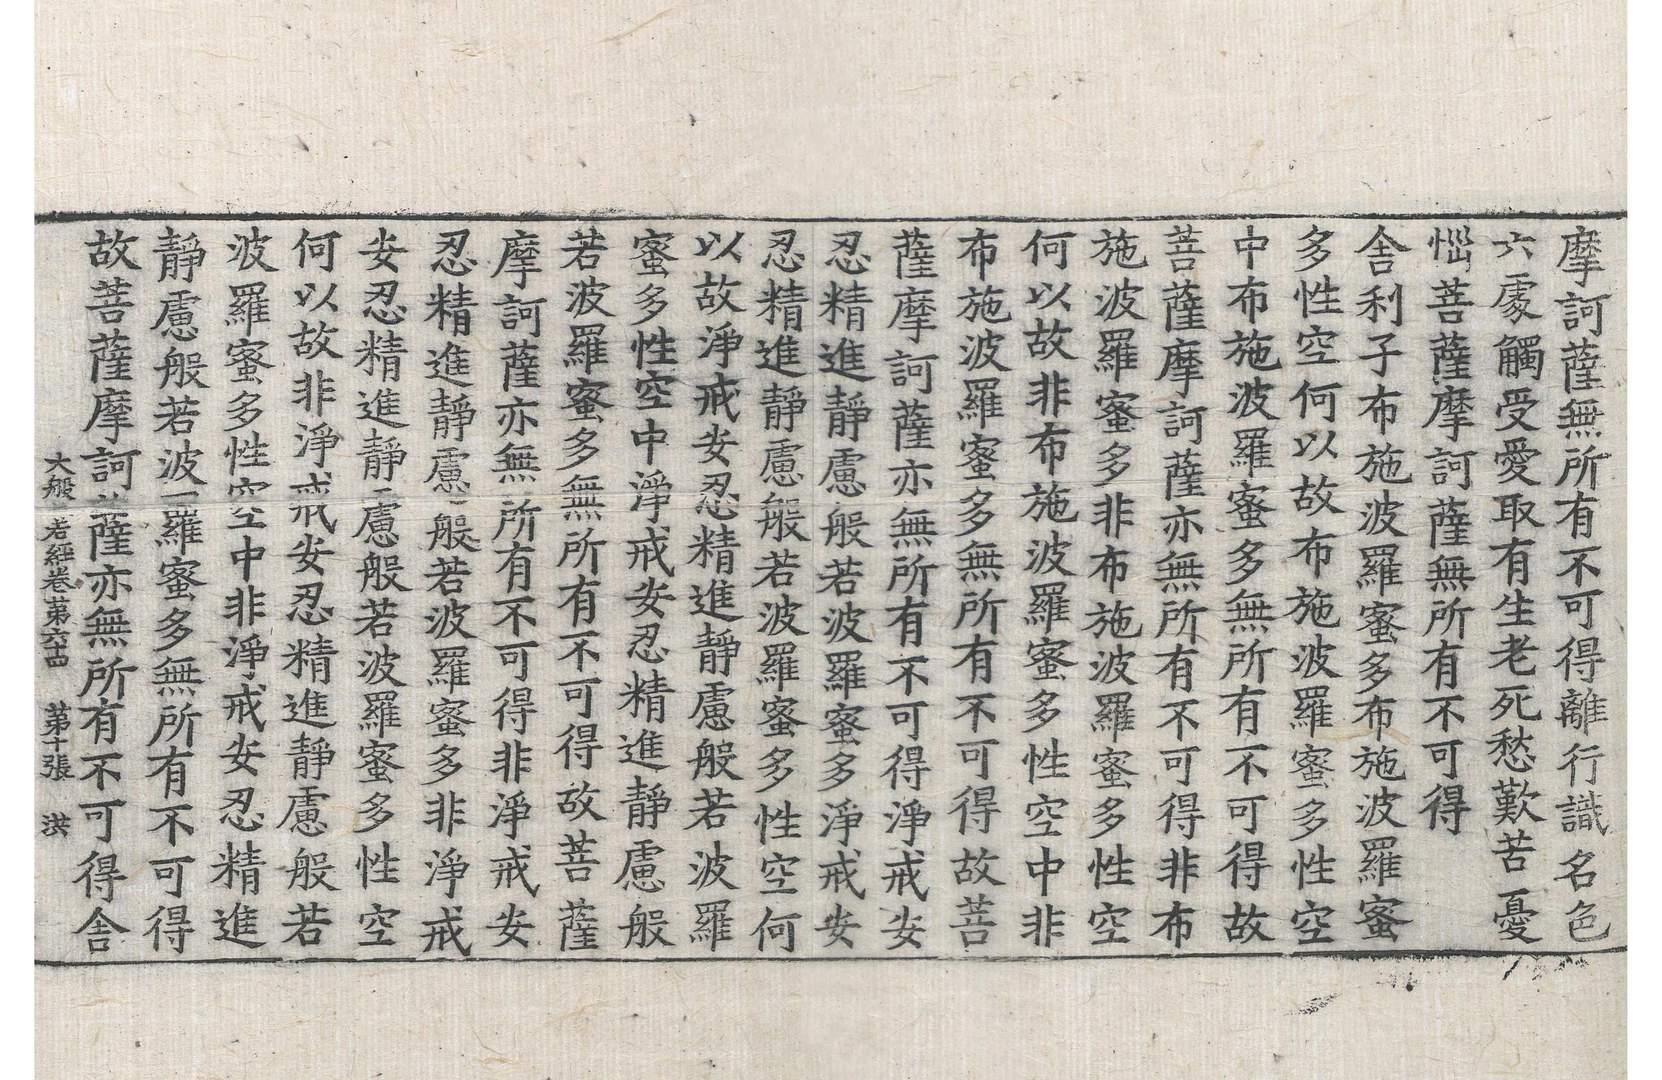 摩訶薩無所有不可得離行識名色
六處觸受愛取有生老死愁歎苦憂
惱菩薩摩訶薩無所有不可得
舍利子布施波羅蜜多布施波羅蜜
多性空何以故布施波羅蜜多性空
中布施波羅蜜多無所有不可得故
菩薩摩訶薩亦無所有不可得非布
施波羅蜜多非布施波羅蜜多性空
何以故非布施波羅蜜多性空中非
布施波羅蜜多無所有不可得故菩
薩摩訶薩亦無所有不可得淨戒安
忍精進靜慮般若波羅蜜多淨戒安
忍精進靜慮般若波羅蜜多性空何
以故淨戒安忍精進靜慮般若波羅
蜜多性空中淨戒安忍精進靜慮般
若波羅蜜多無所有不可得故菩薩
摩訶薩亦無所有不可得非淨戒安
忍精進靜慮般若波羅蜜多非淨戒
安忍精進靜慮般若波羅蜜多性空
何以故非淨戒安忍精進靜慮般若
波羅蜜多性空中非淨戒安忍精進
靜慮般若波羅蜜多無所有不可得
故菩薩摩訶薩亦無所有不可得舍
大般若經卷第六十四 第十張 洪